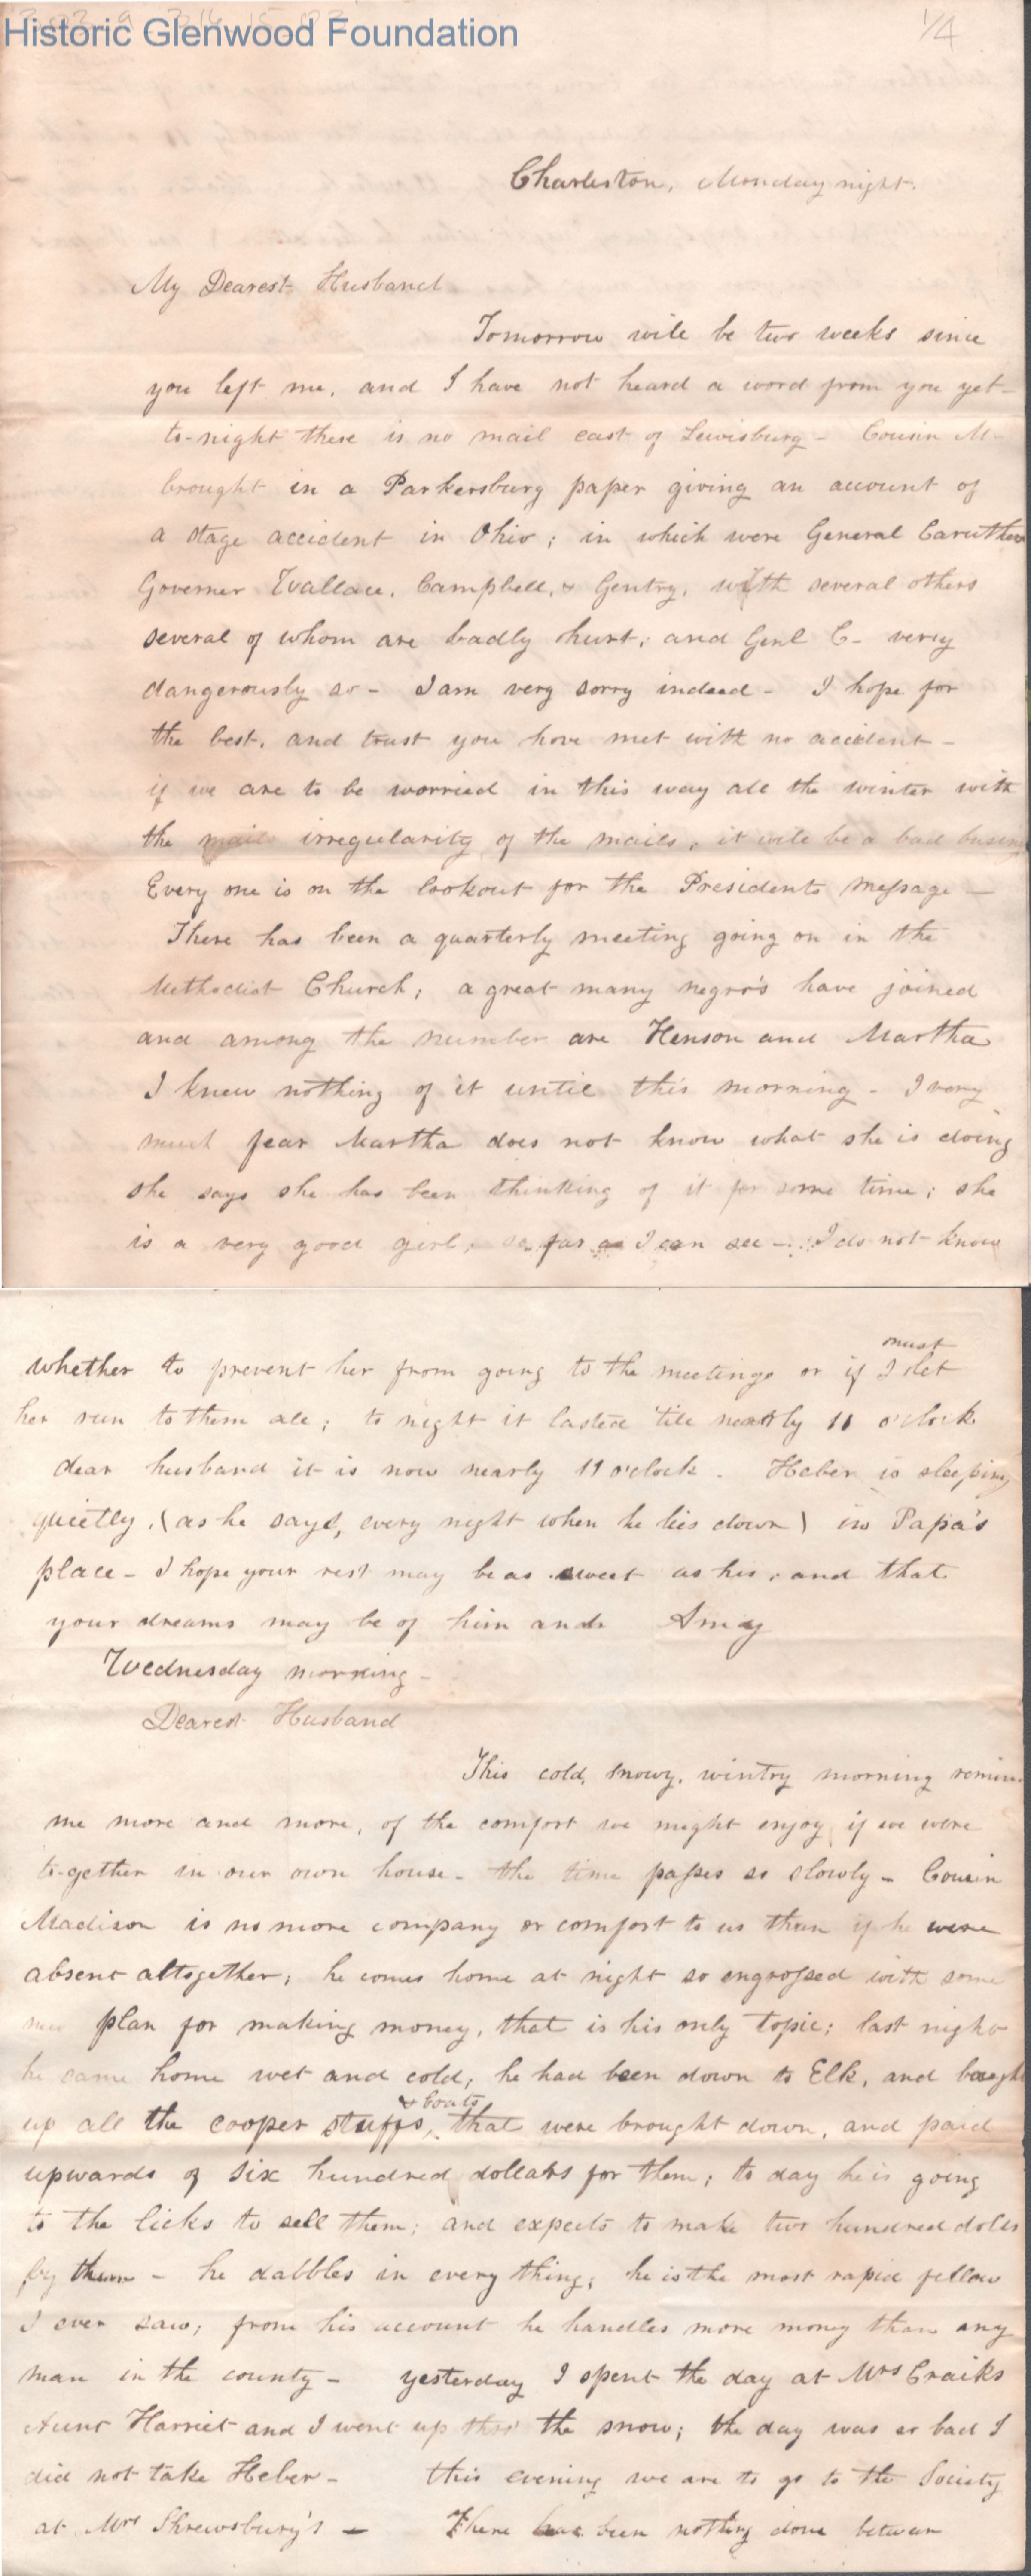 Historic Glenwood Foundation
1/4
Charleston, Monday night.
My Dearest Husband
Tomorrow will be two weeks since
you left me, and I have not heard a word from you yet -
to-night there is no mail east of Lewisburg - Cousin M-
brought in a Parkersburg paper giving an account of
a stage accident in Ohio; in which were General Caruthers
Governer Wallace, Campbell, & Gentry, with several others
several of whom are badly hurt; and Genl C- very
dangerously so - I am very sorry indeed - I hope for
the best, and trust you have met with no accident -
if we are to be worried in this way all the winter with
the mails irregularity of the mails, it will be a bad busin
Every one is on the lookout for the Presidents message -
There has been a quarterly meeting going on in the
Methodist Church; a great many negro's have joined
and among the number are Henson and Martha
I knew nothing of it until this morning - I very
much fear Martha does not know what she is doing
she says she has been thinking of it for some time; she
is a very good girl, so far as I can see - I do not know
whether to prevent her from going to the meetings or if I must let
her run to them all; to night it lasted 'till nearly 11 o'clock
dear husband it is now nearly 11 o'clock. Heber is sleeping
quietly, (as he says, every night when he lies down) in Papa's
place - I hope your rest may be as sweet as his; and that
your dreams may be of him and Amay
Wednesday morning -
Dearest Husband
This cold, snowy, wintry morning remin
me more and more, of the comfort we might enjoy if we were
to-gether in our own house - the time passes so slowly - Cousin
Madison is no more company or comfort to us than if he were
absent altogether; he comes home at night so engrossed with some
new plan for making money, that is his only topic; last night
he came home wet and cold, he had been down to Elk, and bough
up all the cooper stuffs, & boats that were brought down, and paid
upwards of six hundred dollars for them; to day he is going
to the licks to sell them; and expects to make two hundred dolls
by them - he dabbles in every thing, he is the most rapid fellow
I ever saw; from his account he handles more money than any
man in the county - yesterday I spent the day at Mrs Craiks
Aunt Harriet and I went up thro' the snow; the day was so bad I
did not take Heber - this evening we are to go to the Society
at Mrs Shrewsbury's - There has been nothing done between